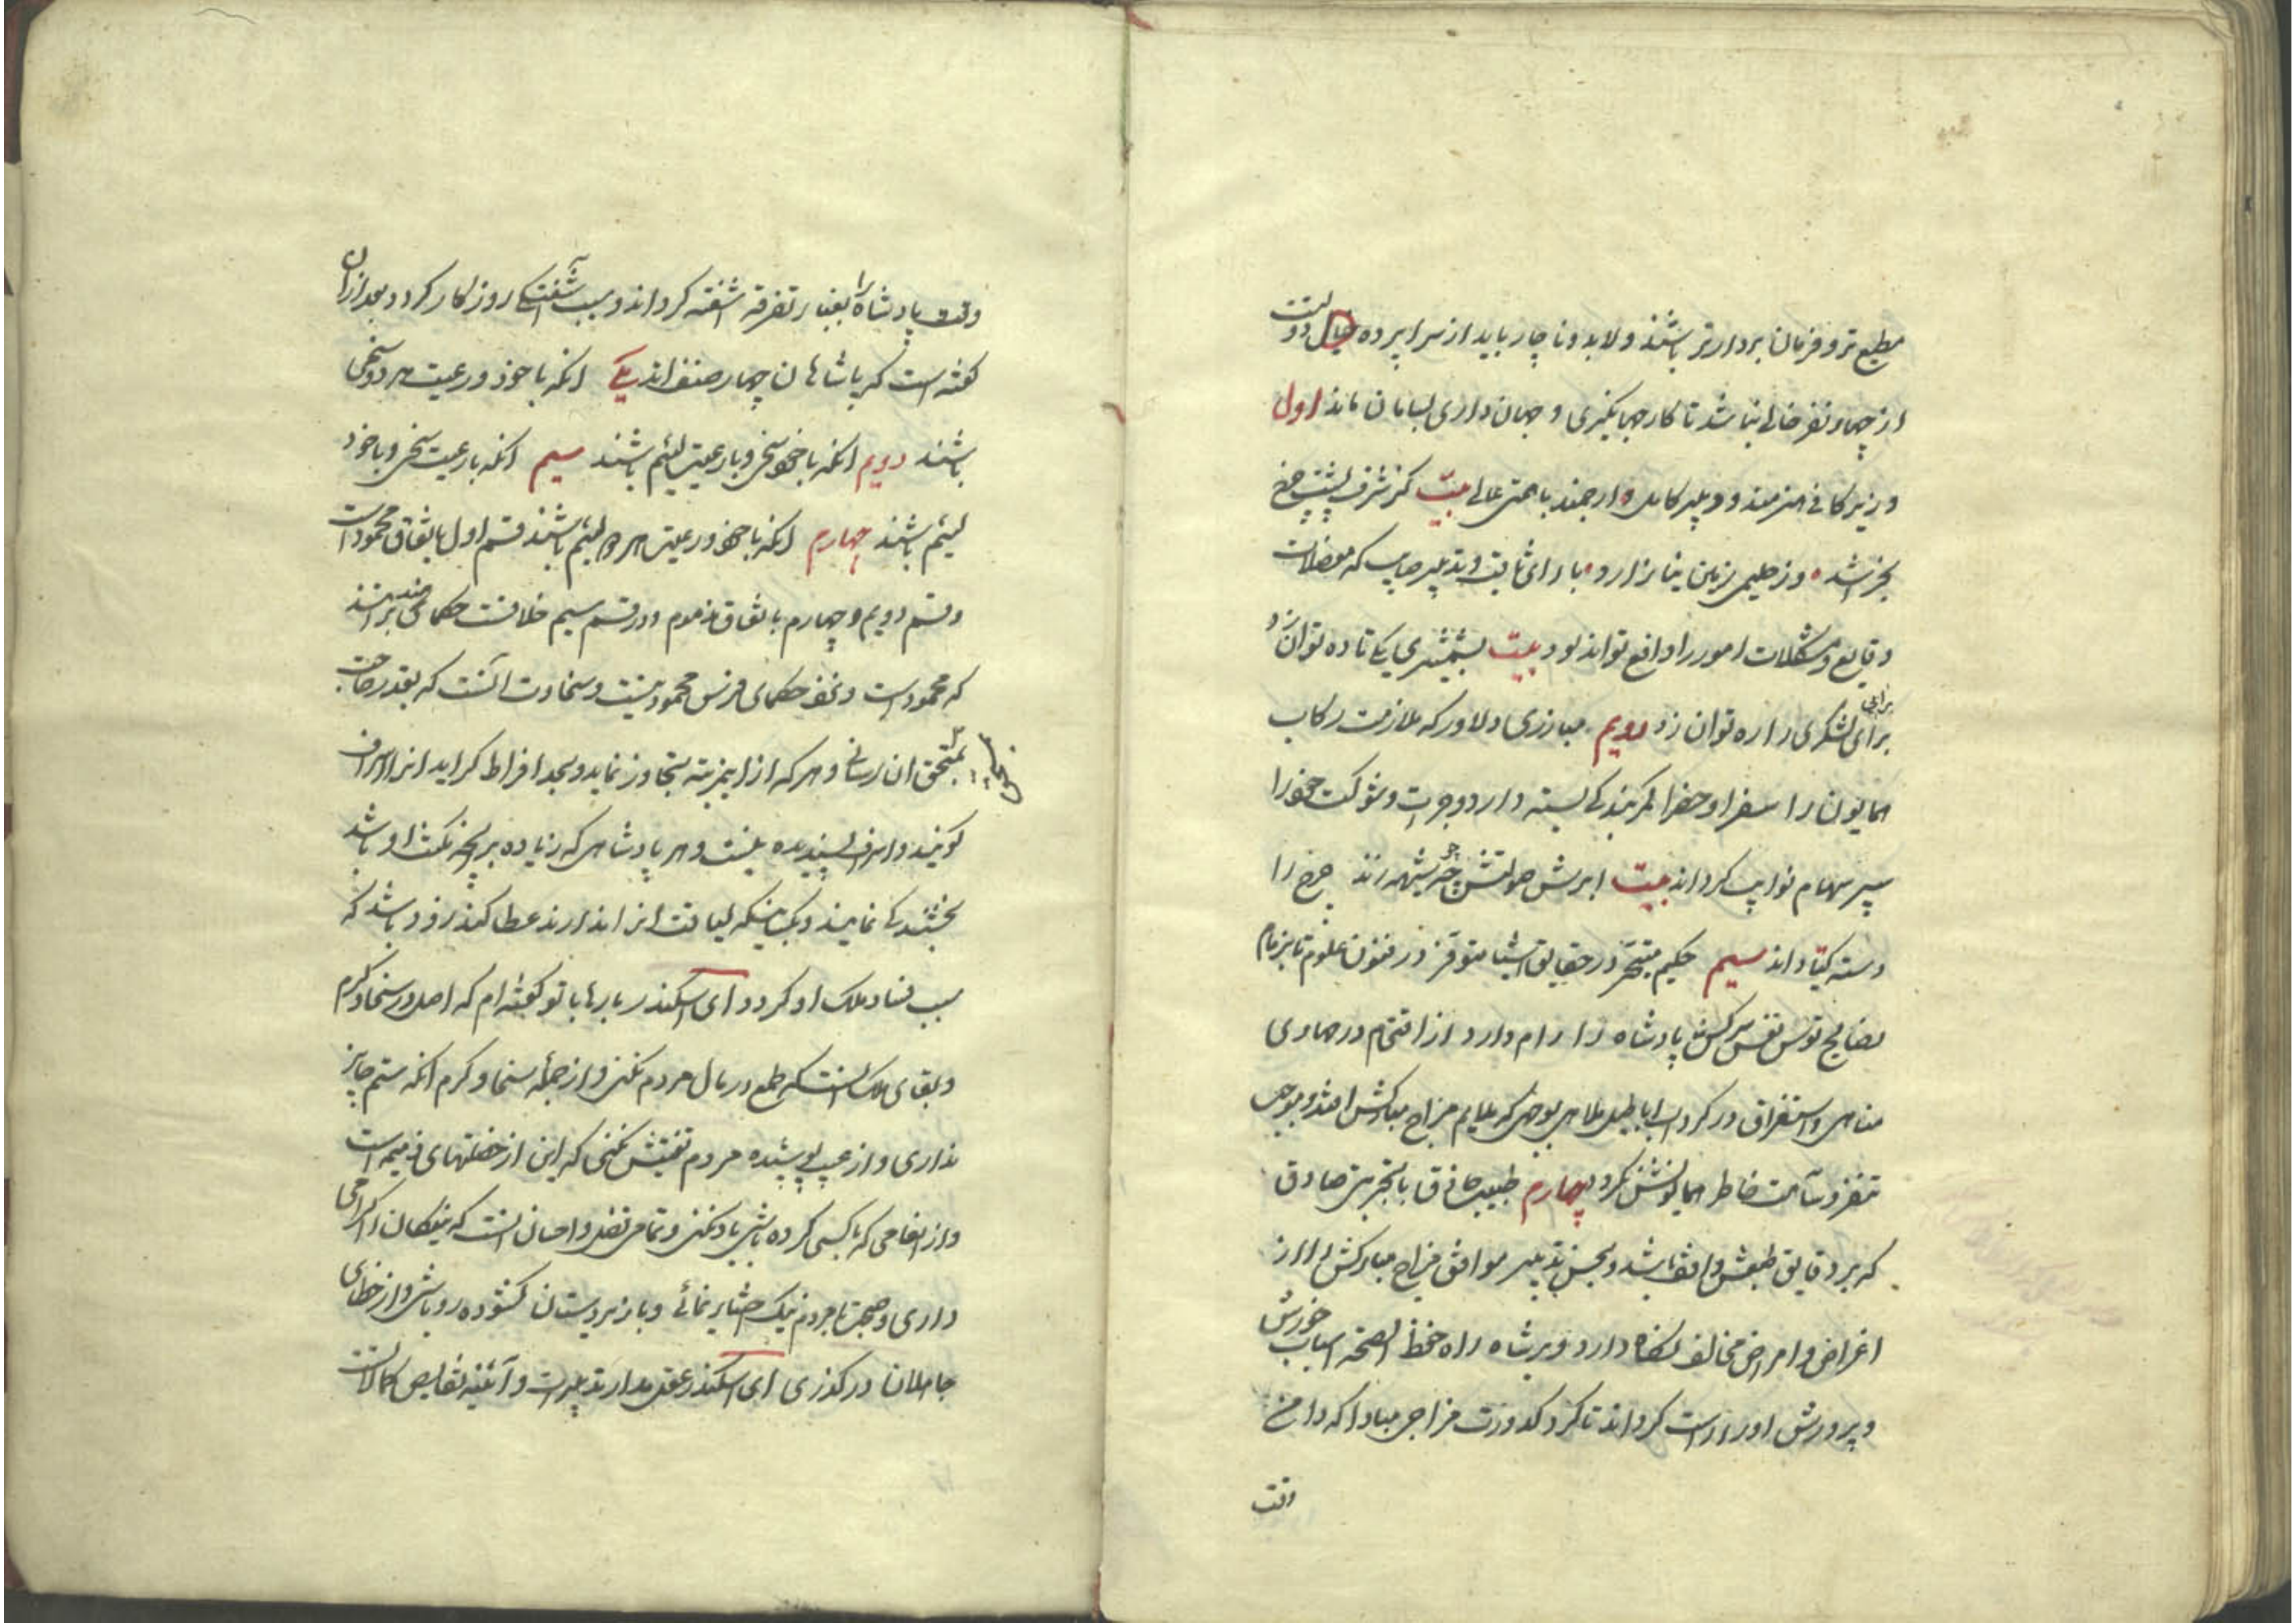 مطیع تر و فرمان بردارتر باشند ولابد و ناچار باید از سراپرده دولت
از چهار نفر خالی نباشد تا کار جهانگیری و جهان داری بسامان ماند اول
وزیر کافی هنرمند و دبیر کامل ارجمند با همتی عالی بیت کز شرف پشت چرخ
شده وز حلیمی زمین نیازارد با رای ثاقب و تدبیر صایب که معضلات
وقایع و مشکلات امور را دافع تواند بود بیت بشمشیری یکی تا ده توان زد
برای لشکری را ره توان زد دویم مبارزی دلاور که ملازمت رکاب
همایون را سفرا و حضرا کمر بندکی بسته دارد و جرات و شوکت خود را
سپر سهام نوایب کرداند بیت ابرش صولتش چو شیهه زند چرخ را
دسته کیتاداند سیم حکیم متبحر در حقایق اشیا متوفر در فنون علوم تا بزمام
نصایح توسن نفس سرکش پادشاه را رام دارد از اقتحام در مهاوی
مناهی و استغراق در کرداب اباطیل ملاهی بوجهی که ملایم مزاج مبارکش افتد و موجب
تنفر و سآمت خاطر همایونش نکردد چهارم طبیب حاذق با تجربتی صادق
که بر دقایق طبعش واقف باشد و بحسن تدبیر موافق مزاج مبارکش را از
اغراض و امراض مخالف نکاه دارد و بر شاه راه حفظ الصحة اسباب خورش
و پرورش او راست کرداند تا کرد کدورت مزاجی مبادا که دامن
وقت
وقت پادشاه را بغبار تفرقه آشفته کرداند و سبب آشفتکی روزکار کردد بعد ازان
کفته است که پاشاهان چهار صنف اند یکی انکه با خود و رعیت هر دو سخی
باشند دویم انکه با خود سخی و با رعیت لئیم باشند سیم انکه با رعیت سخی و با خود
لئیم باشند چهارم انکه با خود و رعیت هر دو لئیم باشند قسم اول باتفاق محمود است
و قسم دویم و چهارم باتفاق مذموم و در قسم سیم خلافست حکمای هند برانند
که محمود است و نزد حکمای فرس محمود نیست و سخاوت آنست که بقدر حاجت
بمستحق ان رسانی و هر که از این مرتبه تجاوز نماید و بحد افراط کراید انرا اسراف
کویند و اسراف پسندیده نیست و هر پادشاهی که زیاده بر انچه مکنت او باشد
بخشندکی نماید و بکسانیکه لیاقت انرا ندارند عطا کند زود باشد که
سبب فساد ملک او کردد ای اسکندر بارها با تو کفته ام که اصل در سخا و کرم
و بقای ملک آنست که طمع در مال مردم نکنی و از جمله سخا و کرم انکه ستم جایز
نداری و از عیب پوشیده مردم تفتیش نکنی که این از خصلتهای ذمیمه است
و از انعامی که با کسی کرده باشی یاد نکنی و تمامی فضل و احسان انست که نیکان را کرامی
داری و صحبت با مردم نیک اختیار نمائی و با زیردستان کشوده رو باشی و از خطای
جاهلان درکذری ای اسکندر عقل مدار تدبیر است و آئینه نقایص و کمالات